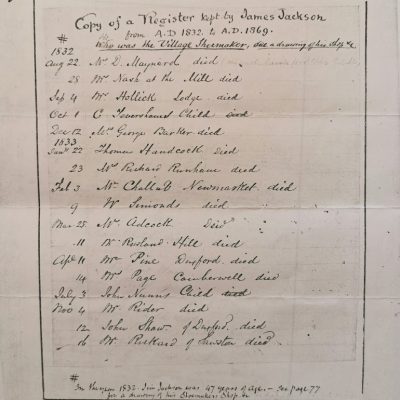 Copy of a Register kept by James Jackson
from A.D 1832. to A.D. 1869.
# Who was the Village Shoemaker, see a drawing of his Shop &c
1832
Aug 22 Mr D. Maynard died
28 Mr Nash at the Mill died
Sep 4 Mr Hollick Lodge died
Oct 1 C Tevershams Child died
Dec 12 Mrs George Barker died
1833
Jany 22 Thomas Handcock died
23 Mrs Richard Runhane died
Feb 3 Mr Challas Newmarket died
9 W Simonds died
Mar 25 Mr Adcock Died
11 W Rowland Hill died
Apl 11 Mr Pine Duxford died
14 Mr Page Camberwell died
July 3 John Nunns Child died
Nov 4 Mr Rider died
12 John Shaw of Duxford died
16 Mr Rickard of Sawston died
#
In the year 1832. Jim Jackson was 47 years of age. - See page 77
for a drawing of his Shoemakers Shop, &c